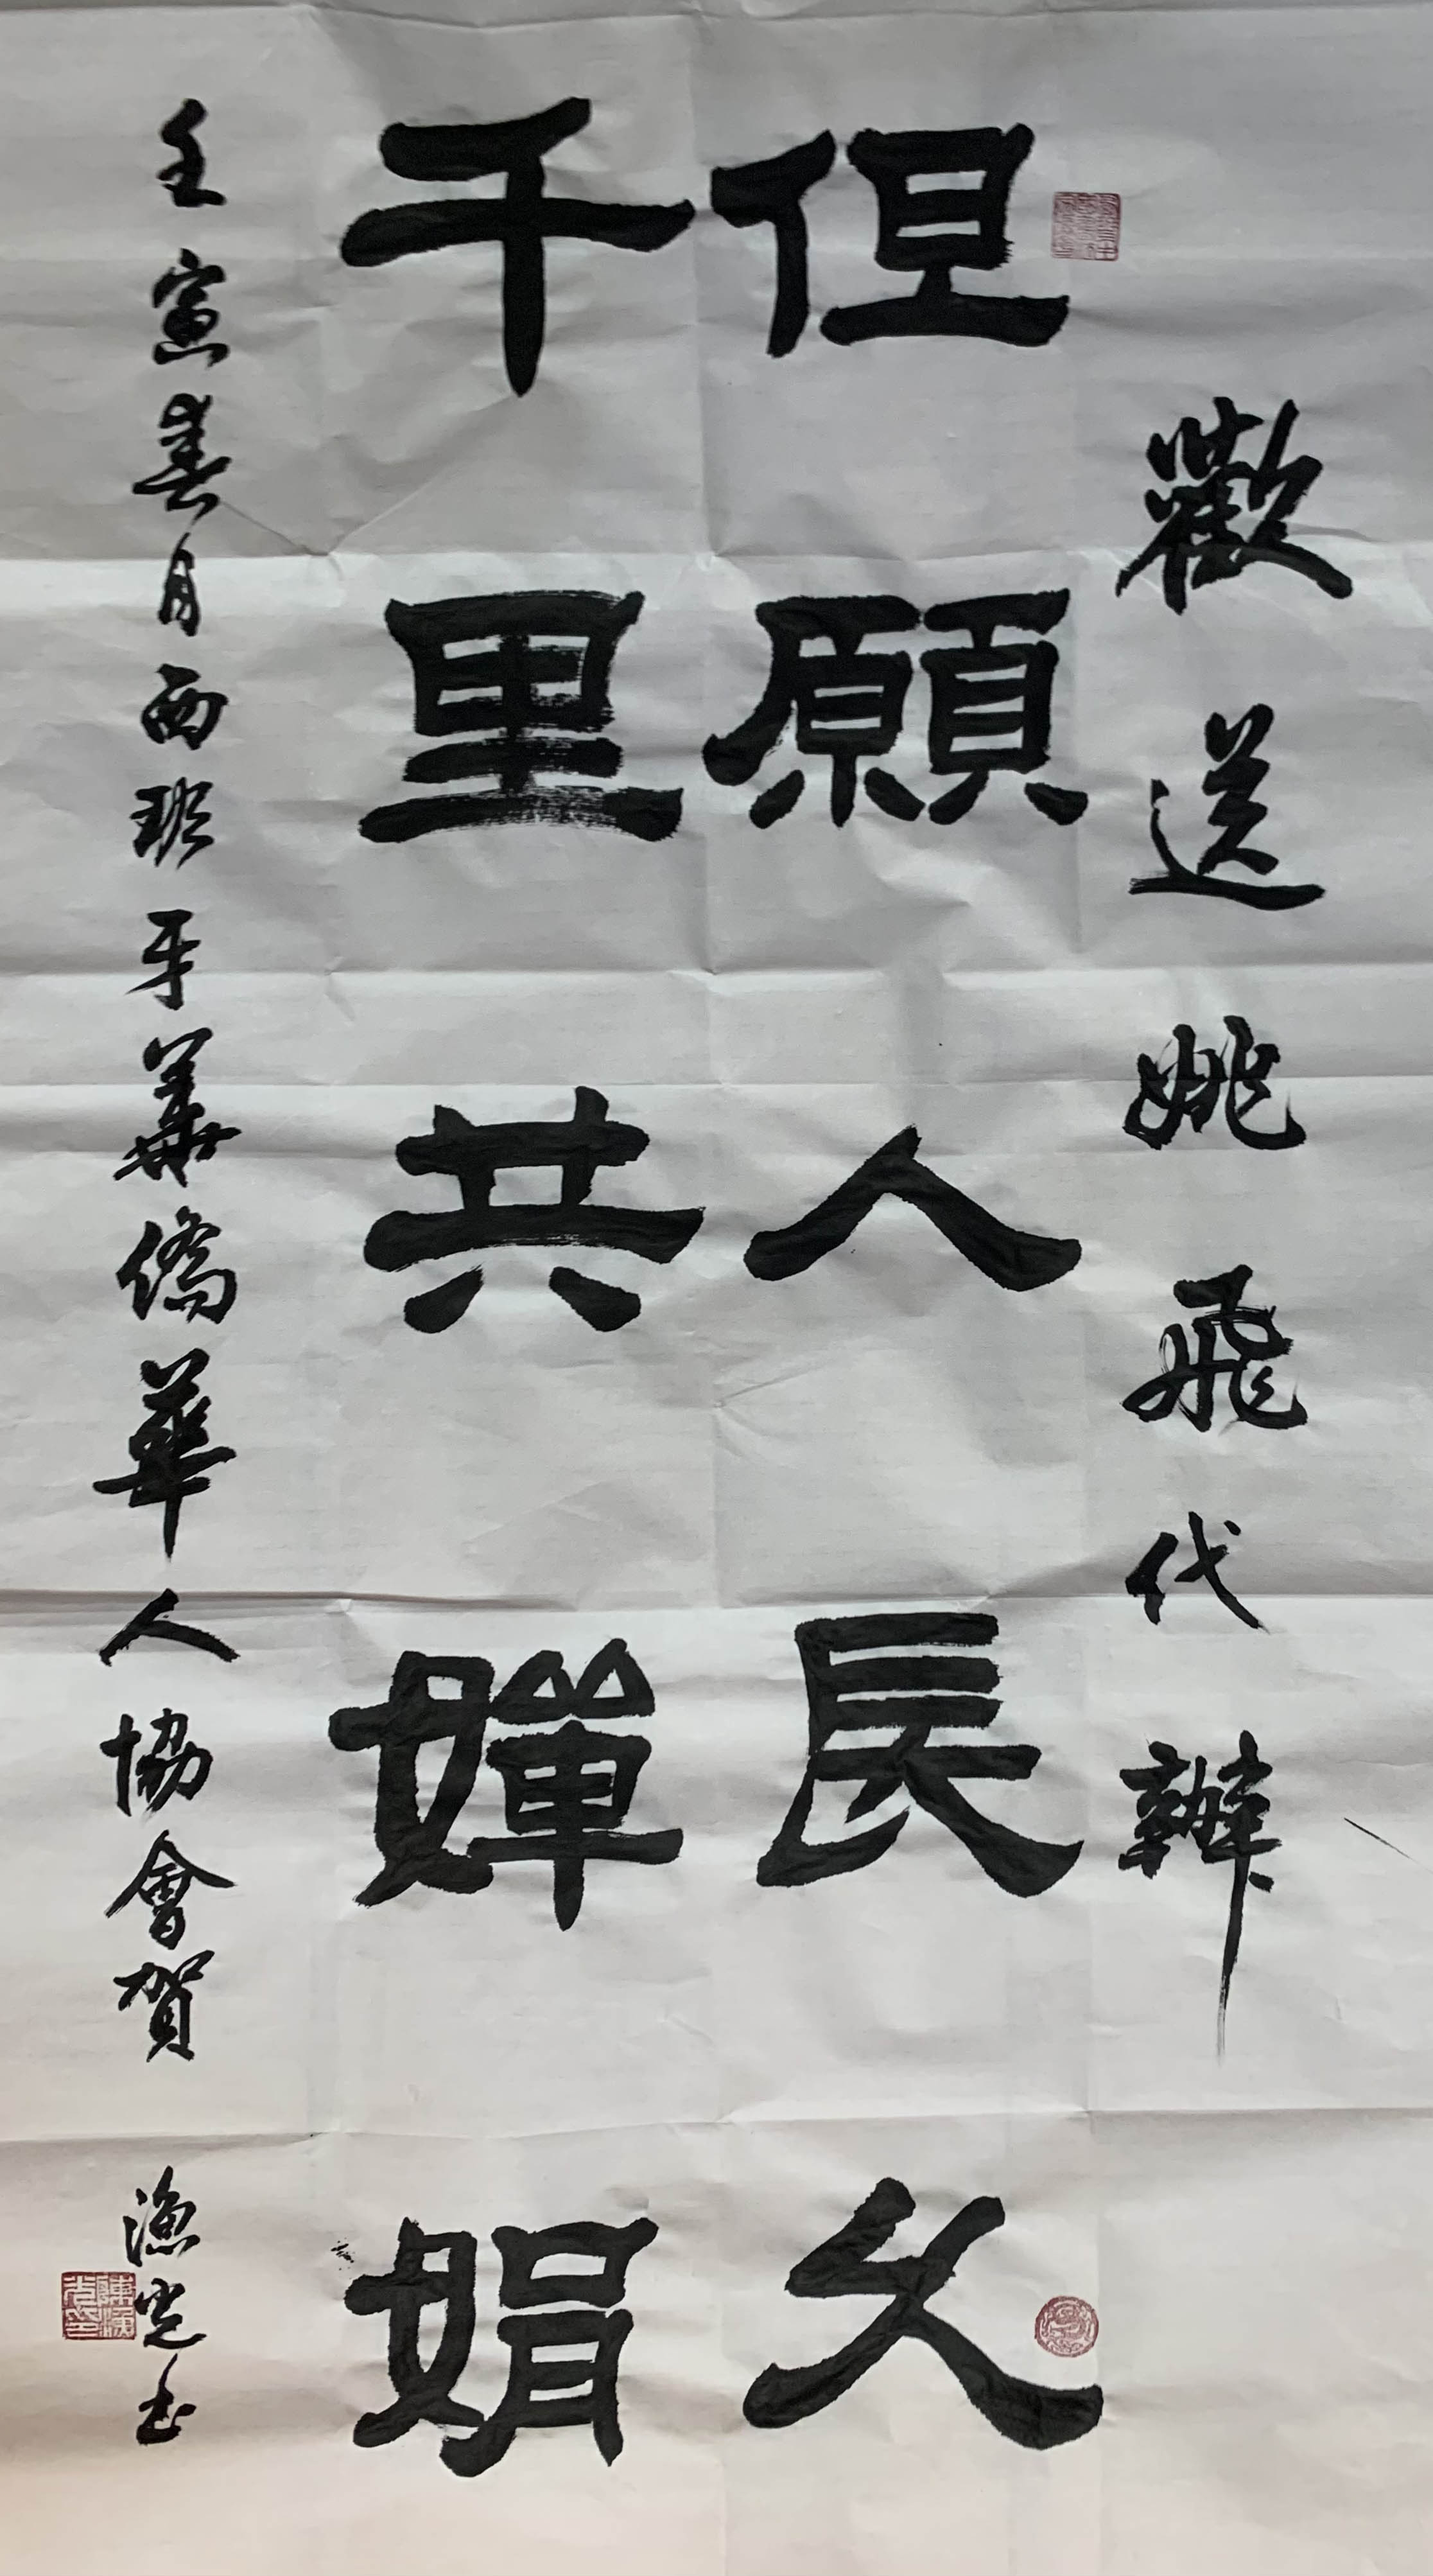 歡送姚飛代辦
但願人長久
千里共嬋娟
壬寅春月西班牙華僑華人協會賀
漁光书